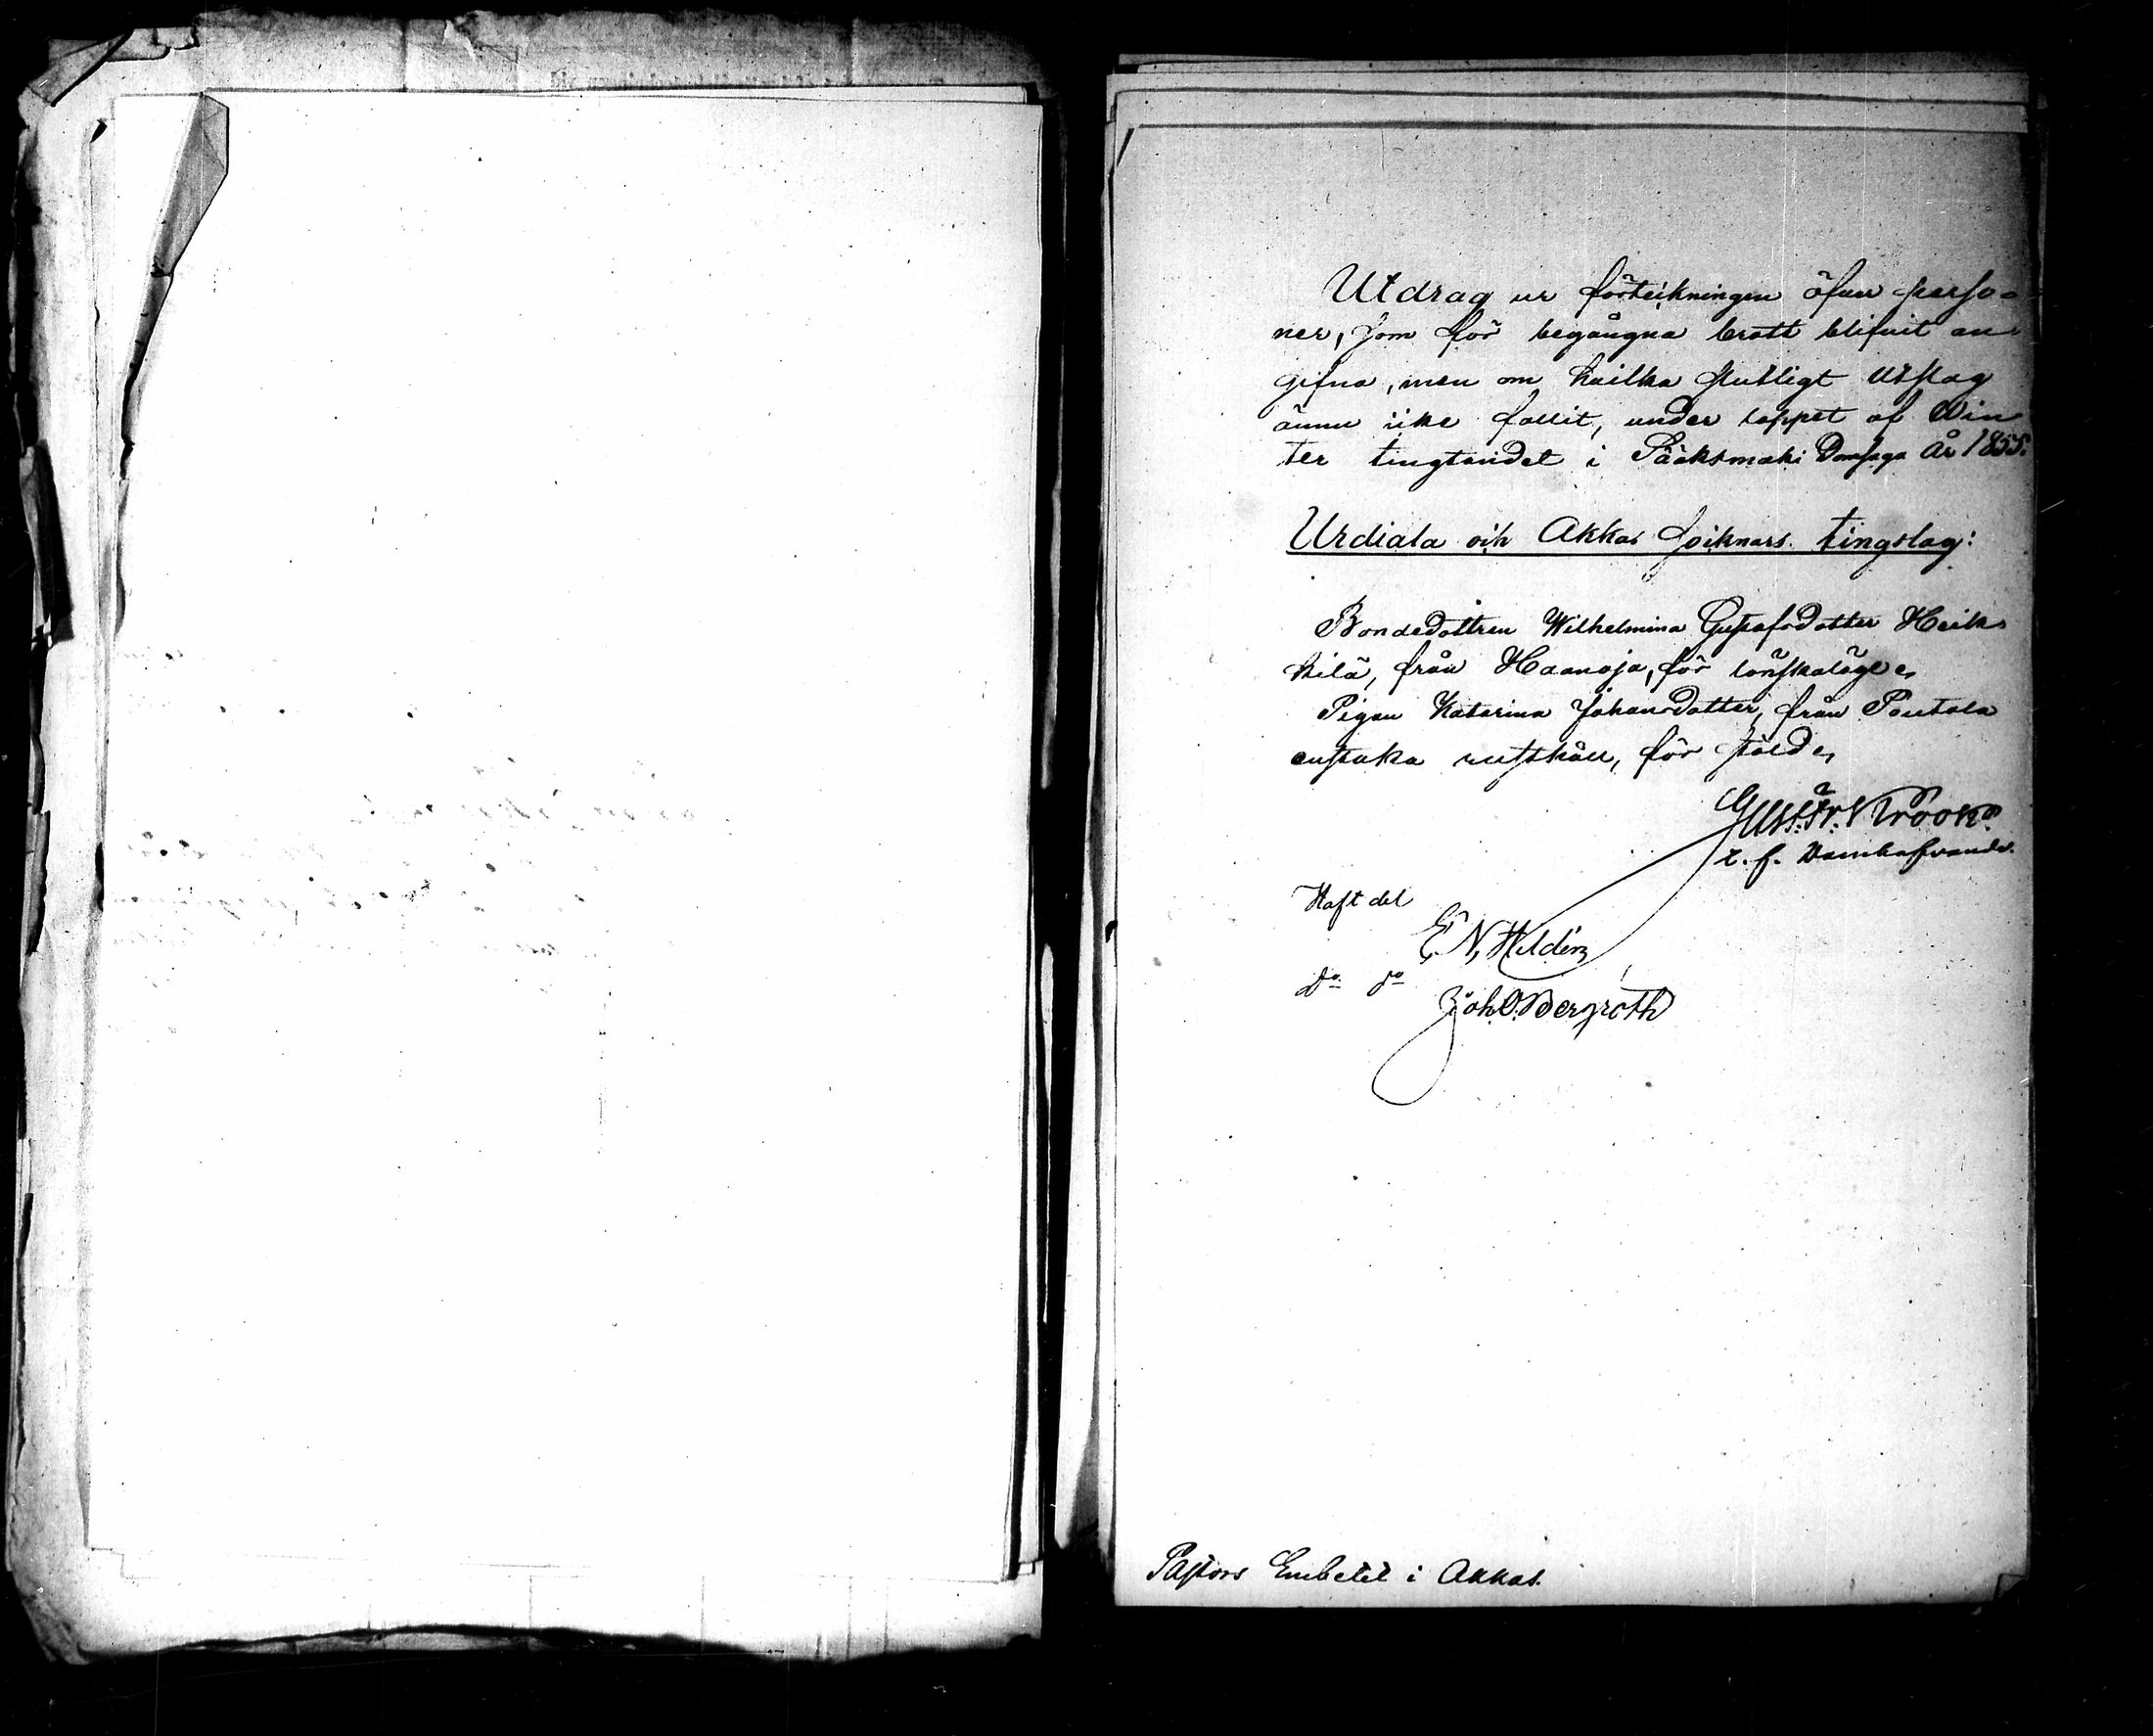 Utdrag ur förteikningen öfver perso-
ner, som för begångna brott blifvit an-
gifna, men om hvilka slutligt utslag
ännu icke fallit, under loppet af Win
ter tingtendet i Sääksmäki Domsaga År 1855.
Urdiala och Akkas Soiknars tingslag:
Bondedottren Wilhelmina Gustafsdotter Heik-
kilä, från Haanoja, för lönskaläge,
Pigan Katarina Johansdotter, från Pentola
enstaka rusthåll, för stöld,
Gust. Fr. Krook
t. f. Domhafvande.
Haft del
E. N. Hildén
Do do
Joh. O. Bergroth
Pastors Embetet i Akkas.